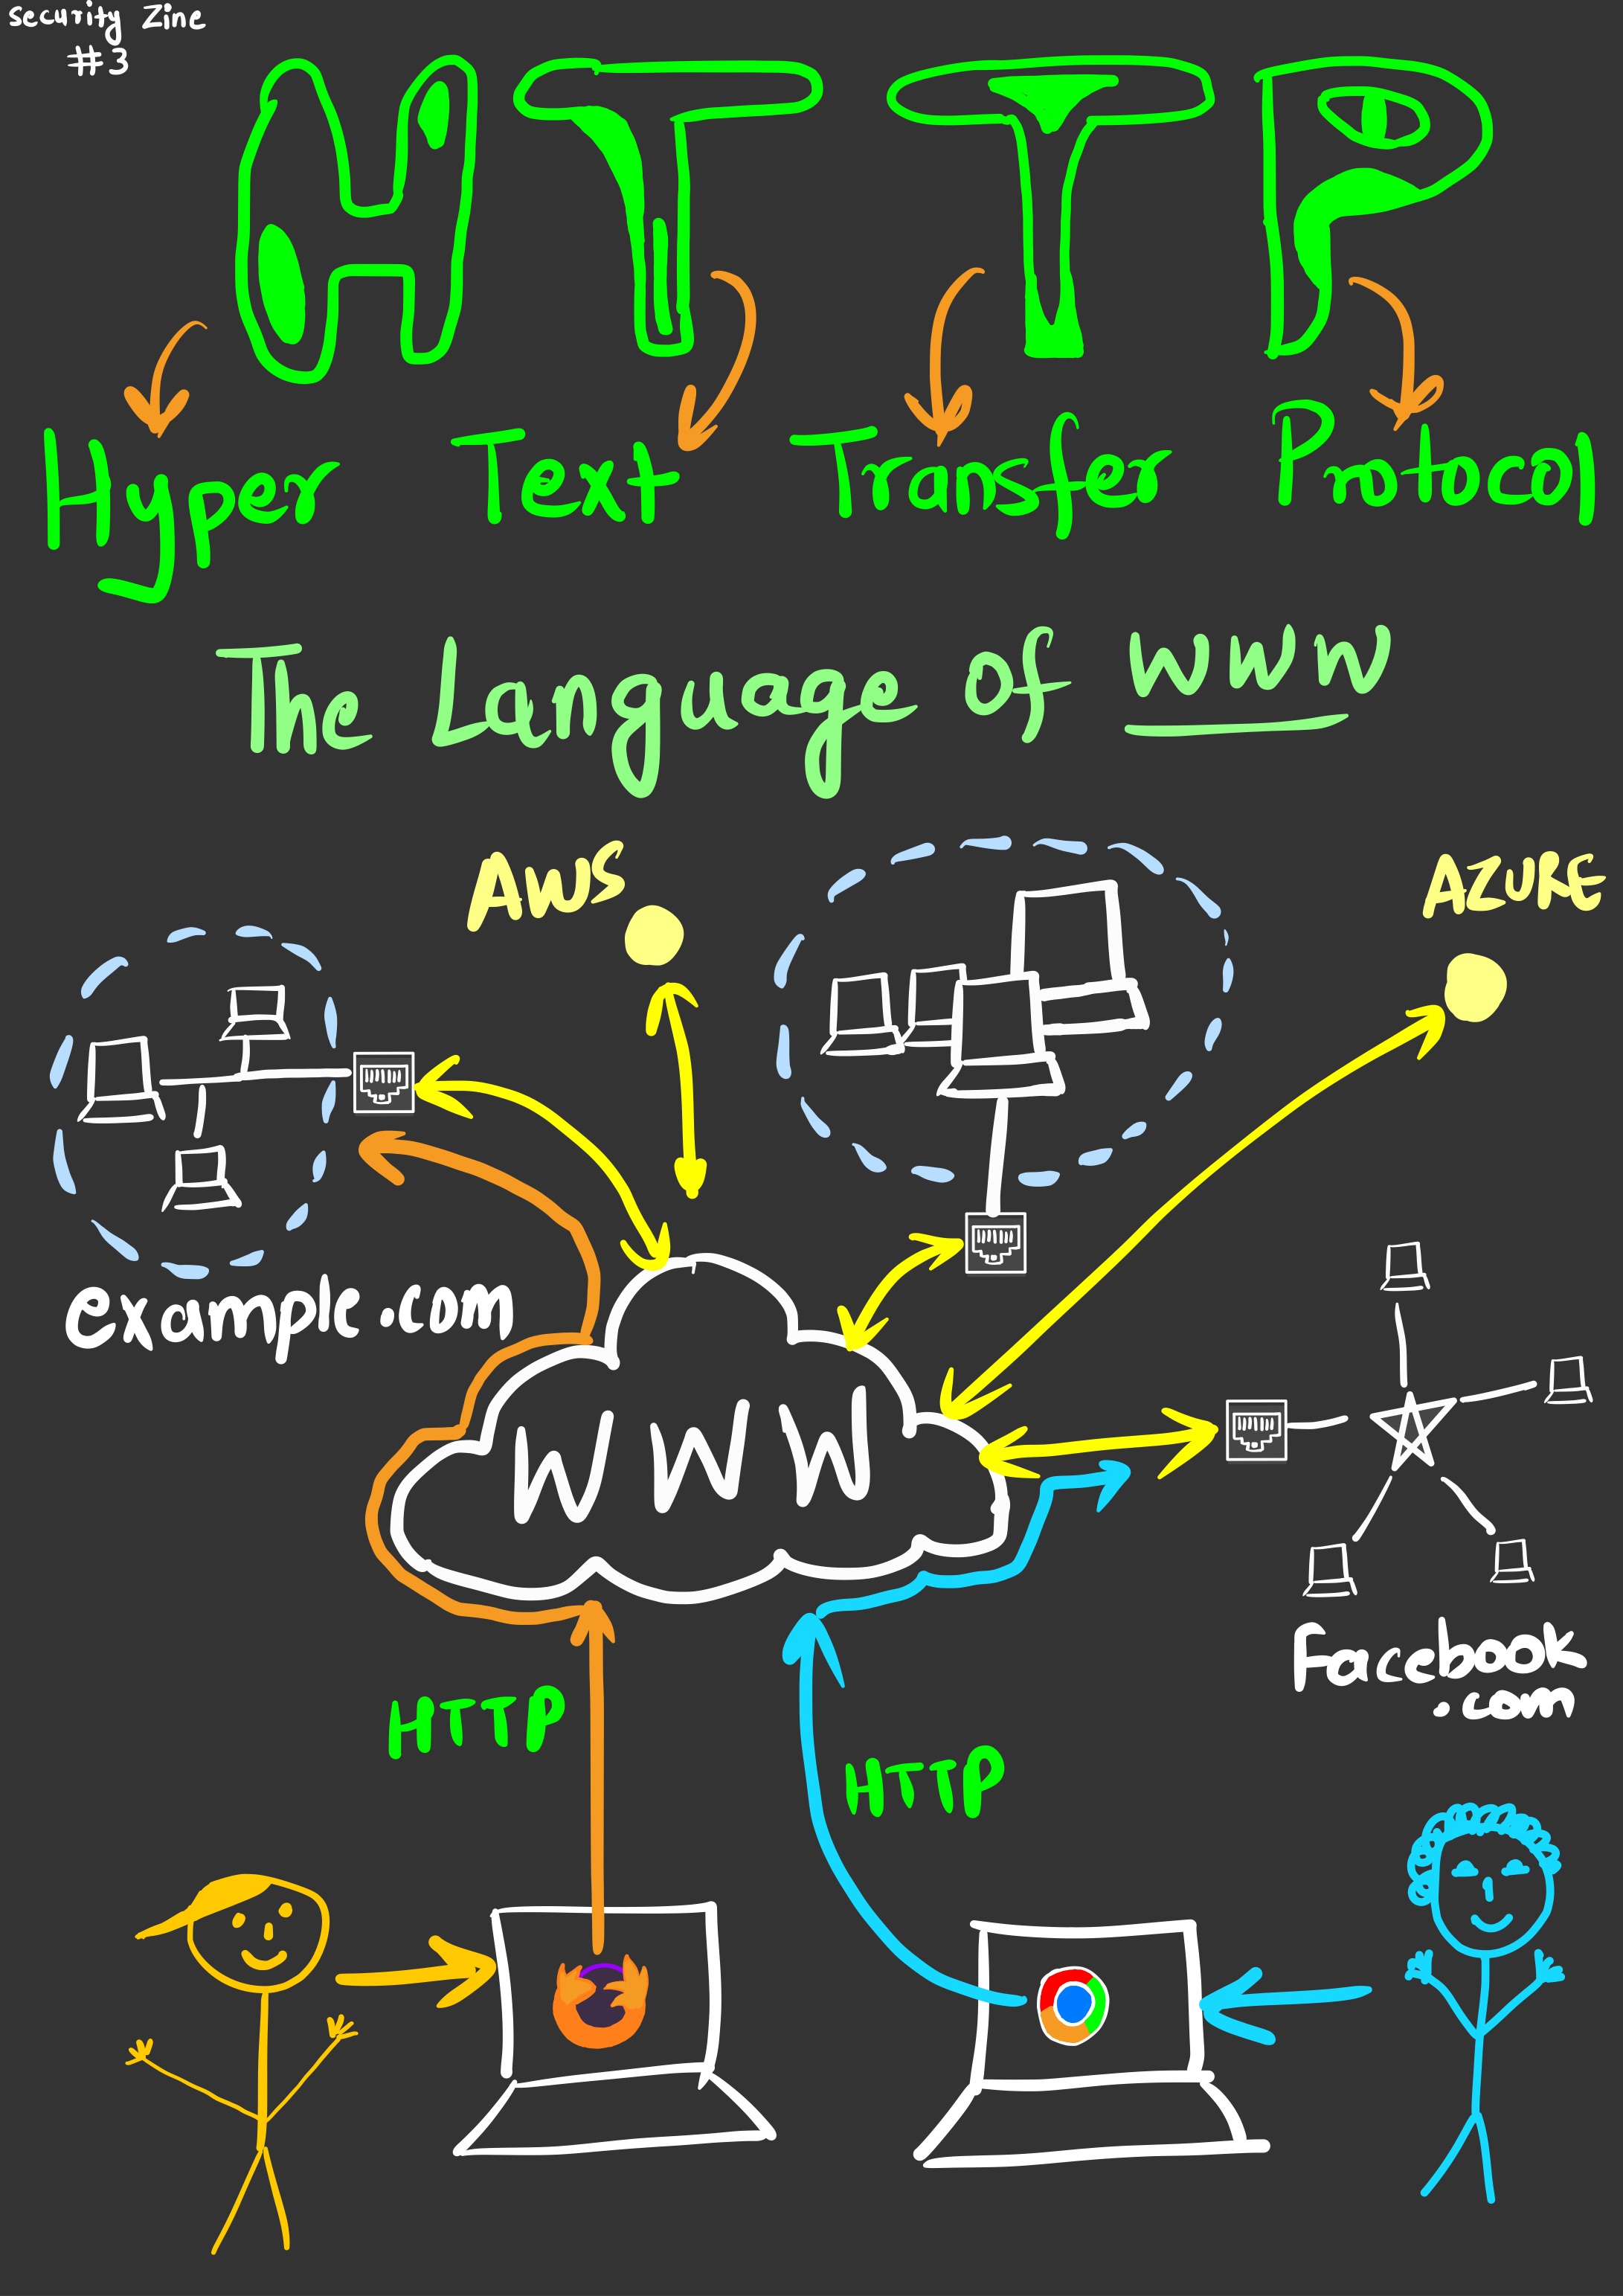 Security Zine
#3
HTTP
Hyper Text Transfer Protocal
The Language of WWW
AWS
AZURE
example.com
WWW
Facebook
.com
HTTP
HTTP